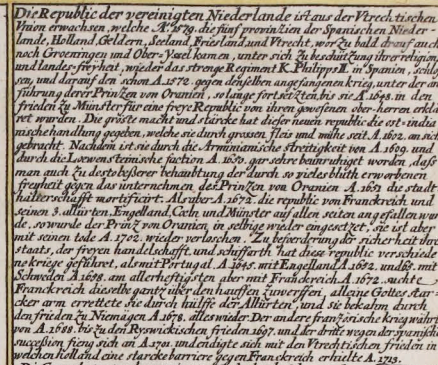 Die Republic der vereinigten Niederlande ist aus der Vtrechtischen
Vnion erwachsen, welche A. 1579. die fünf provinzen der Spanischen Nieder-
lande, Holland, Geldern, Seeland, Friesland, und Vtrecht, wor zu bald drauf auch
noch Groeningen und Ober-Yssel kamen, unter sich zu beschützung ihrer religion,
und landes-freyheit, wieder das strenge Regiment K. Philipps II. in Spanien, schlos
sen, und darauf den schon A. 1572. gegen denselben angefangenen krieg, unter der an
führung derer Prinzen von Oranien, so lange fortsetzten, bis sie A. 1648. in den
frieden zu Münster für eine freye Republic von ihren gewesenen ober-herren erklä
ret wurden. Die gröste macht und stärcke hat dieser neuen republic die ost-india
nische handlung gegeben, welche sie durch grossen fleis und mühe seit A. 1602. an sich
gebracht. Nachdem ist sie durch die Arminianische streitigkeit von A. 1609. und
durch die Loewensteinische faction A. 1650. gar sehre beinruhiget worden, daß
man auch zu desto beßerer behaubtung der durch so vieles bluth erworbenen
freyheit gegen das unternehmen des Prinzen von Oranien A. 1651 die stadt
halterschafft mortificirt. Als aber A. 1672. die republic von Franckreich und
seinen 3. allürten, Engelland, Cöln und Münster auf allen seiten angefallen wur
de, so wurde der Prinz von Oranien in selbige wieder eingesetzet, sie ist aber
mit seinen tode A. 1702. wieder verloschen. Zu befoerderung der sicherheit ihres
staats, der freyen handelschafft, und schiffarth hat diese republic verschiede
ne kriege, geführet, als mit Portugal A. 1645. mit Engelland A. 1652. und 65. mit
Schweden A. 1658. am allerhefftigsten aber mit Franckreich A. 1672. suchte
Franckreich dieselbe gantz über den hauffen zuwerffen, alleine Gottes star-
cker arm errettete sie durch hülffe der Allürten, und sie bekahm durch
den frieden zu Niemägen A. 1678. alles wieder. Der andere französische krieg währte
von A. 1688. bis zu den Ryswickischen frieden 1697. und der dritte wegen der spanischen
succession fieng sich an A. 1701. und endigte sich mit den Vtrechtischen frieden in
welchen holland eine starcke barriere gegen Franckreich erhielte A. 1713.